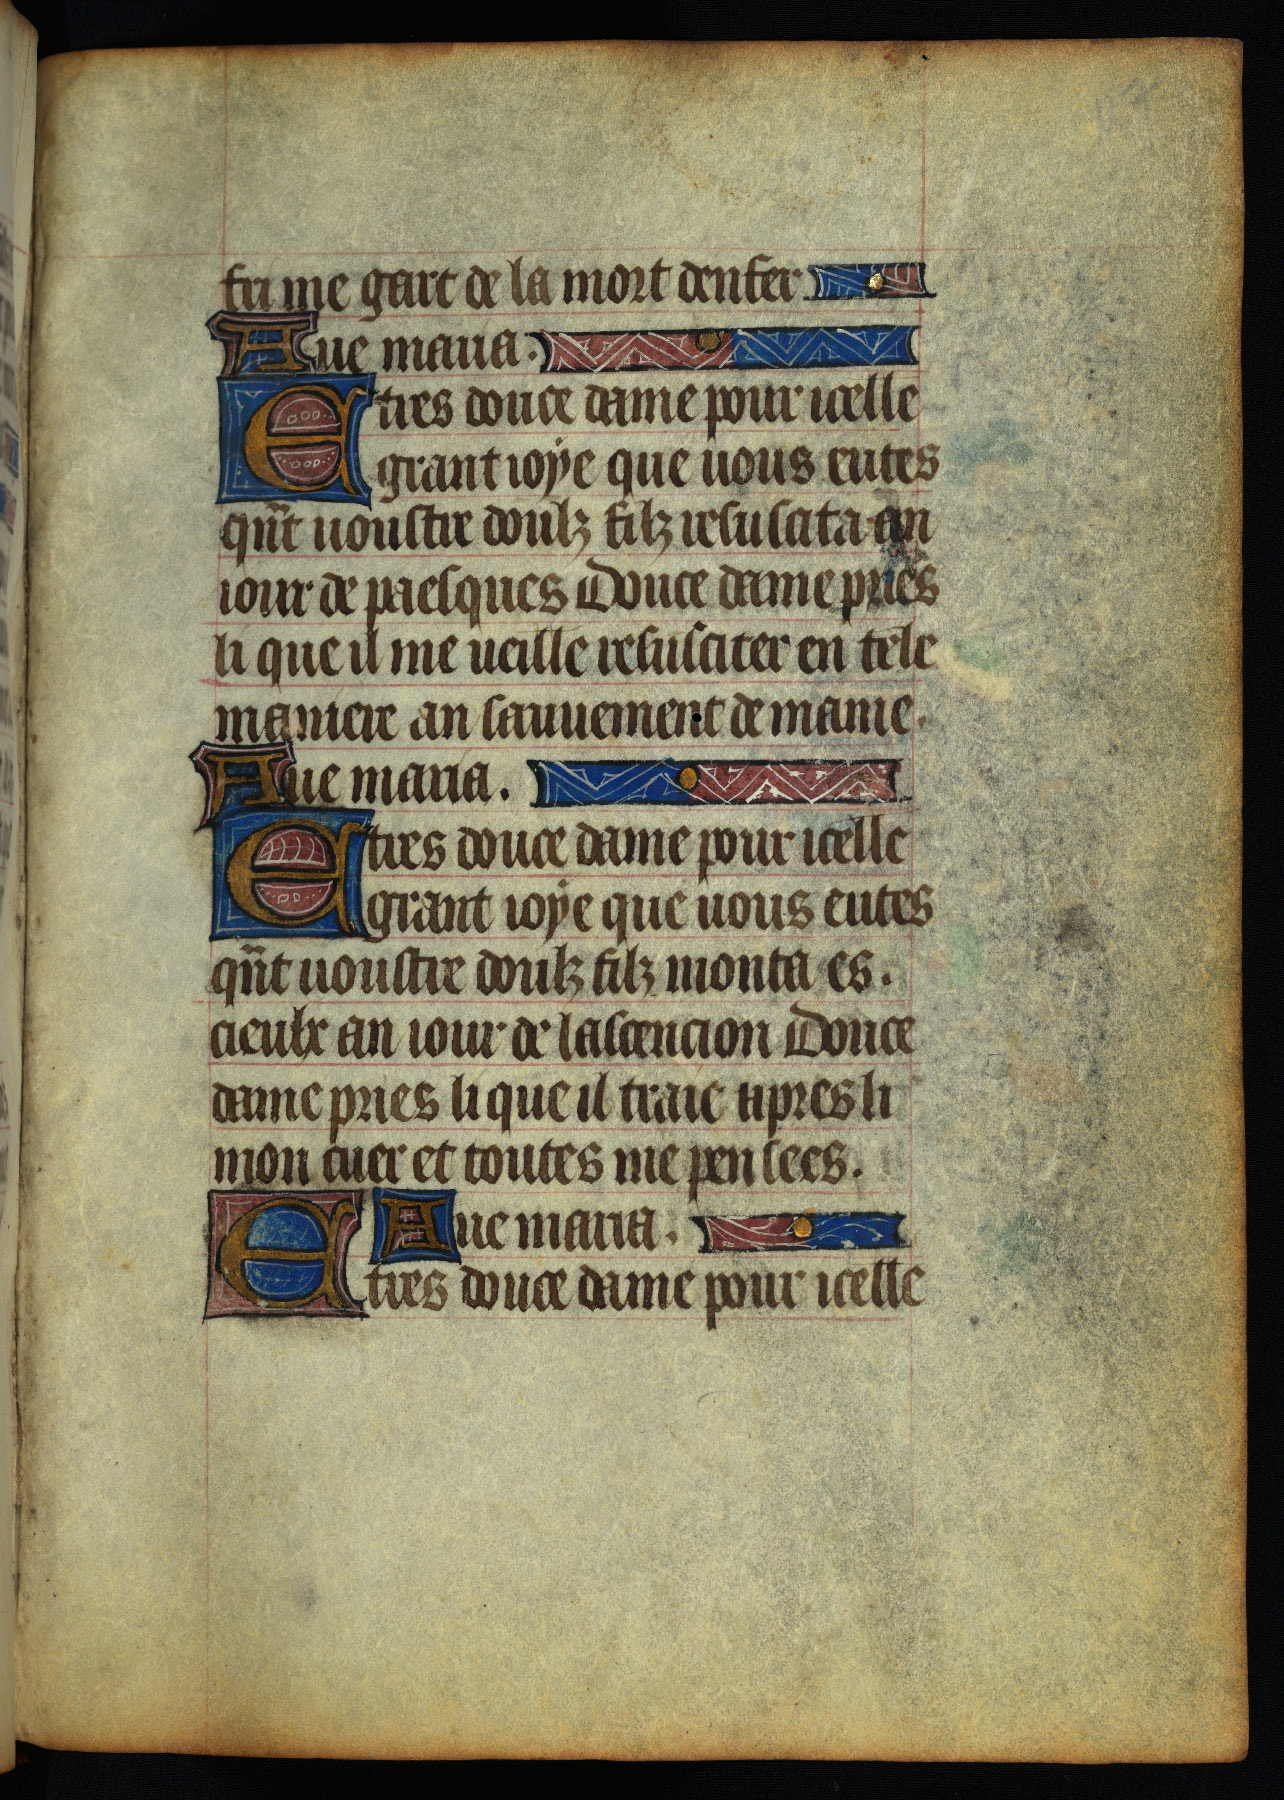 fri me gart de la mort denfer
Aue maria.
E tres douce dame pour icelle
grant ioye que uous eutes
qñt uoustre doulz filz resuscita an
iour de paesques Douce dame pries
li que il me ueille resusciter en tele
maniere an sauuement de mame.
Aue maria.
E tres douce dame pour icelle
grant ioye que uous eutes
qñt uoustre doulz filz monta es.
cieulx an iour de lascencion Douce
dame pries li que il traie apres li
mon cuer et toutes me pensees.
Aue maria.
E tres douce dame pour icelle